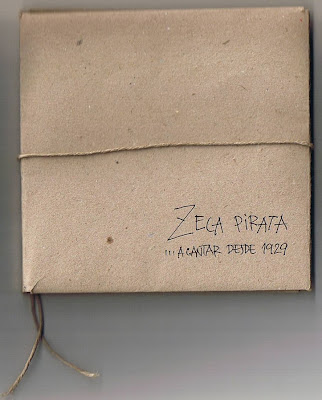 ZECA PIRATA
... A CANTAR DESDE 1929